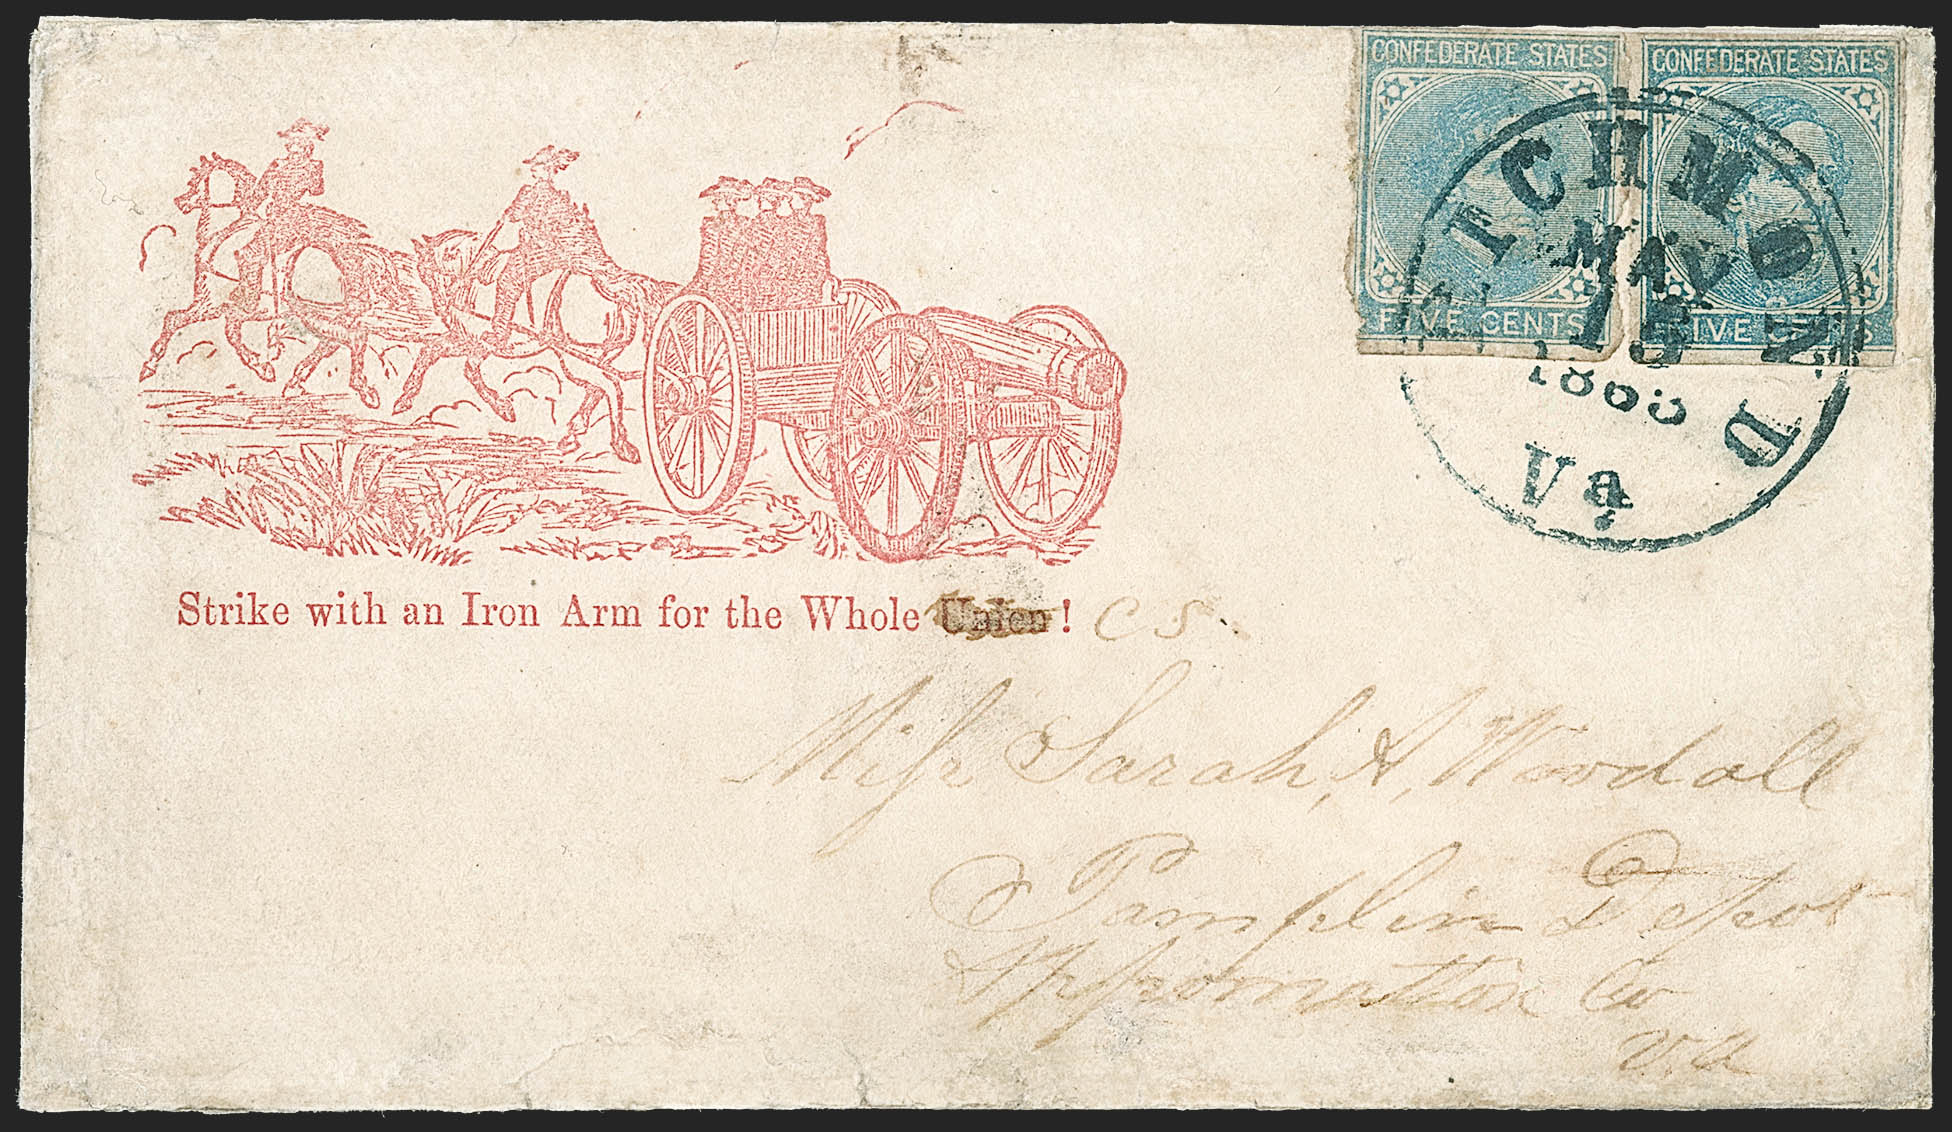 CONFEDERATE STATES
FIVE CENTS
CONFEDERATE STATES
FIVE CENTS
RICHMOND
MAY
18
1863
Va
Strike with an Iron Arm for the Whole Union! C S.
Miss Sarah, A, Woodall
Pamplin Depot
Appomattox Co
Va